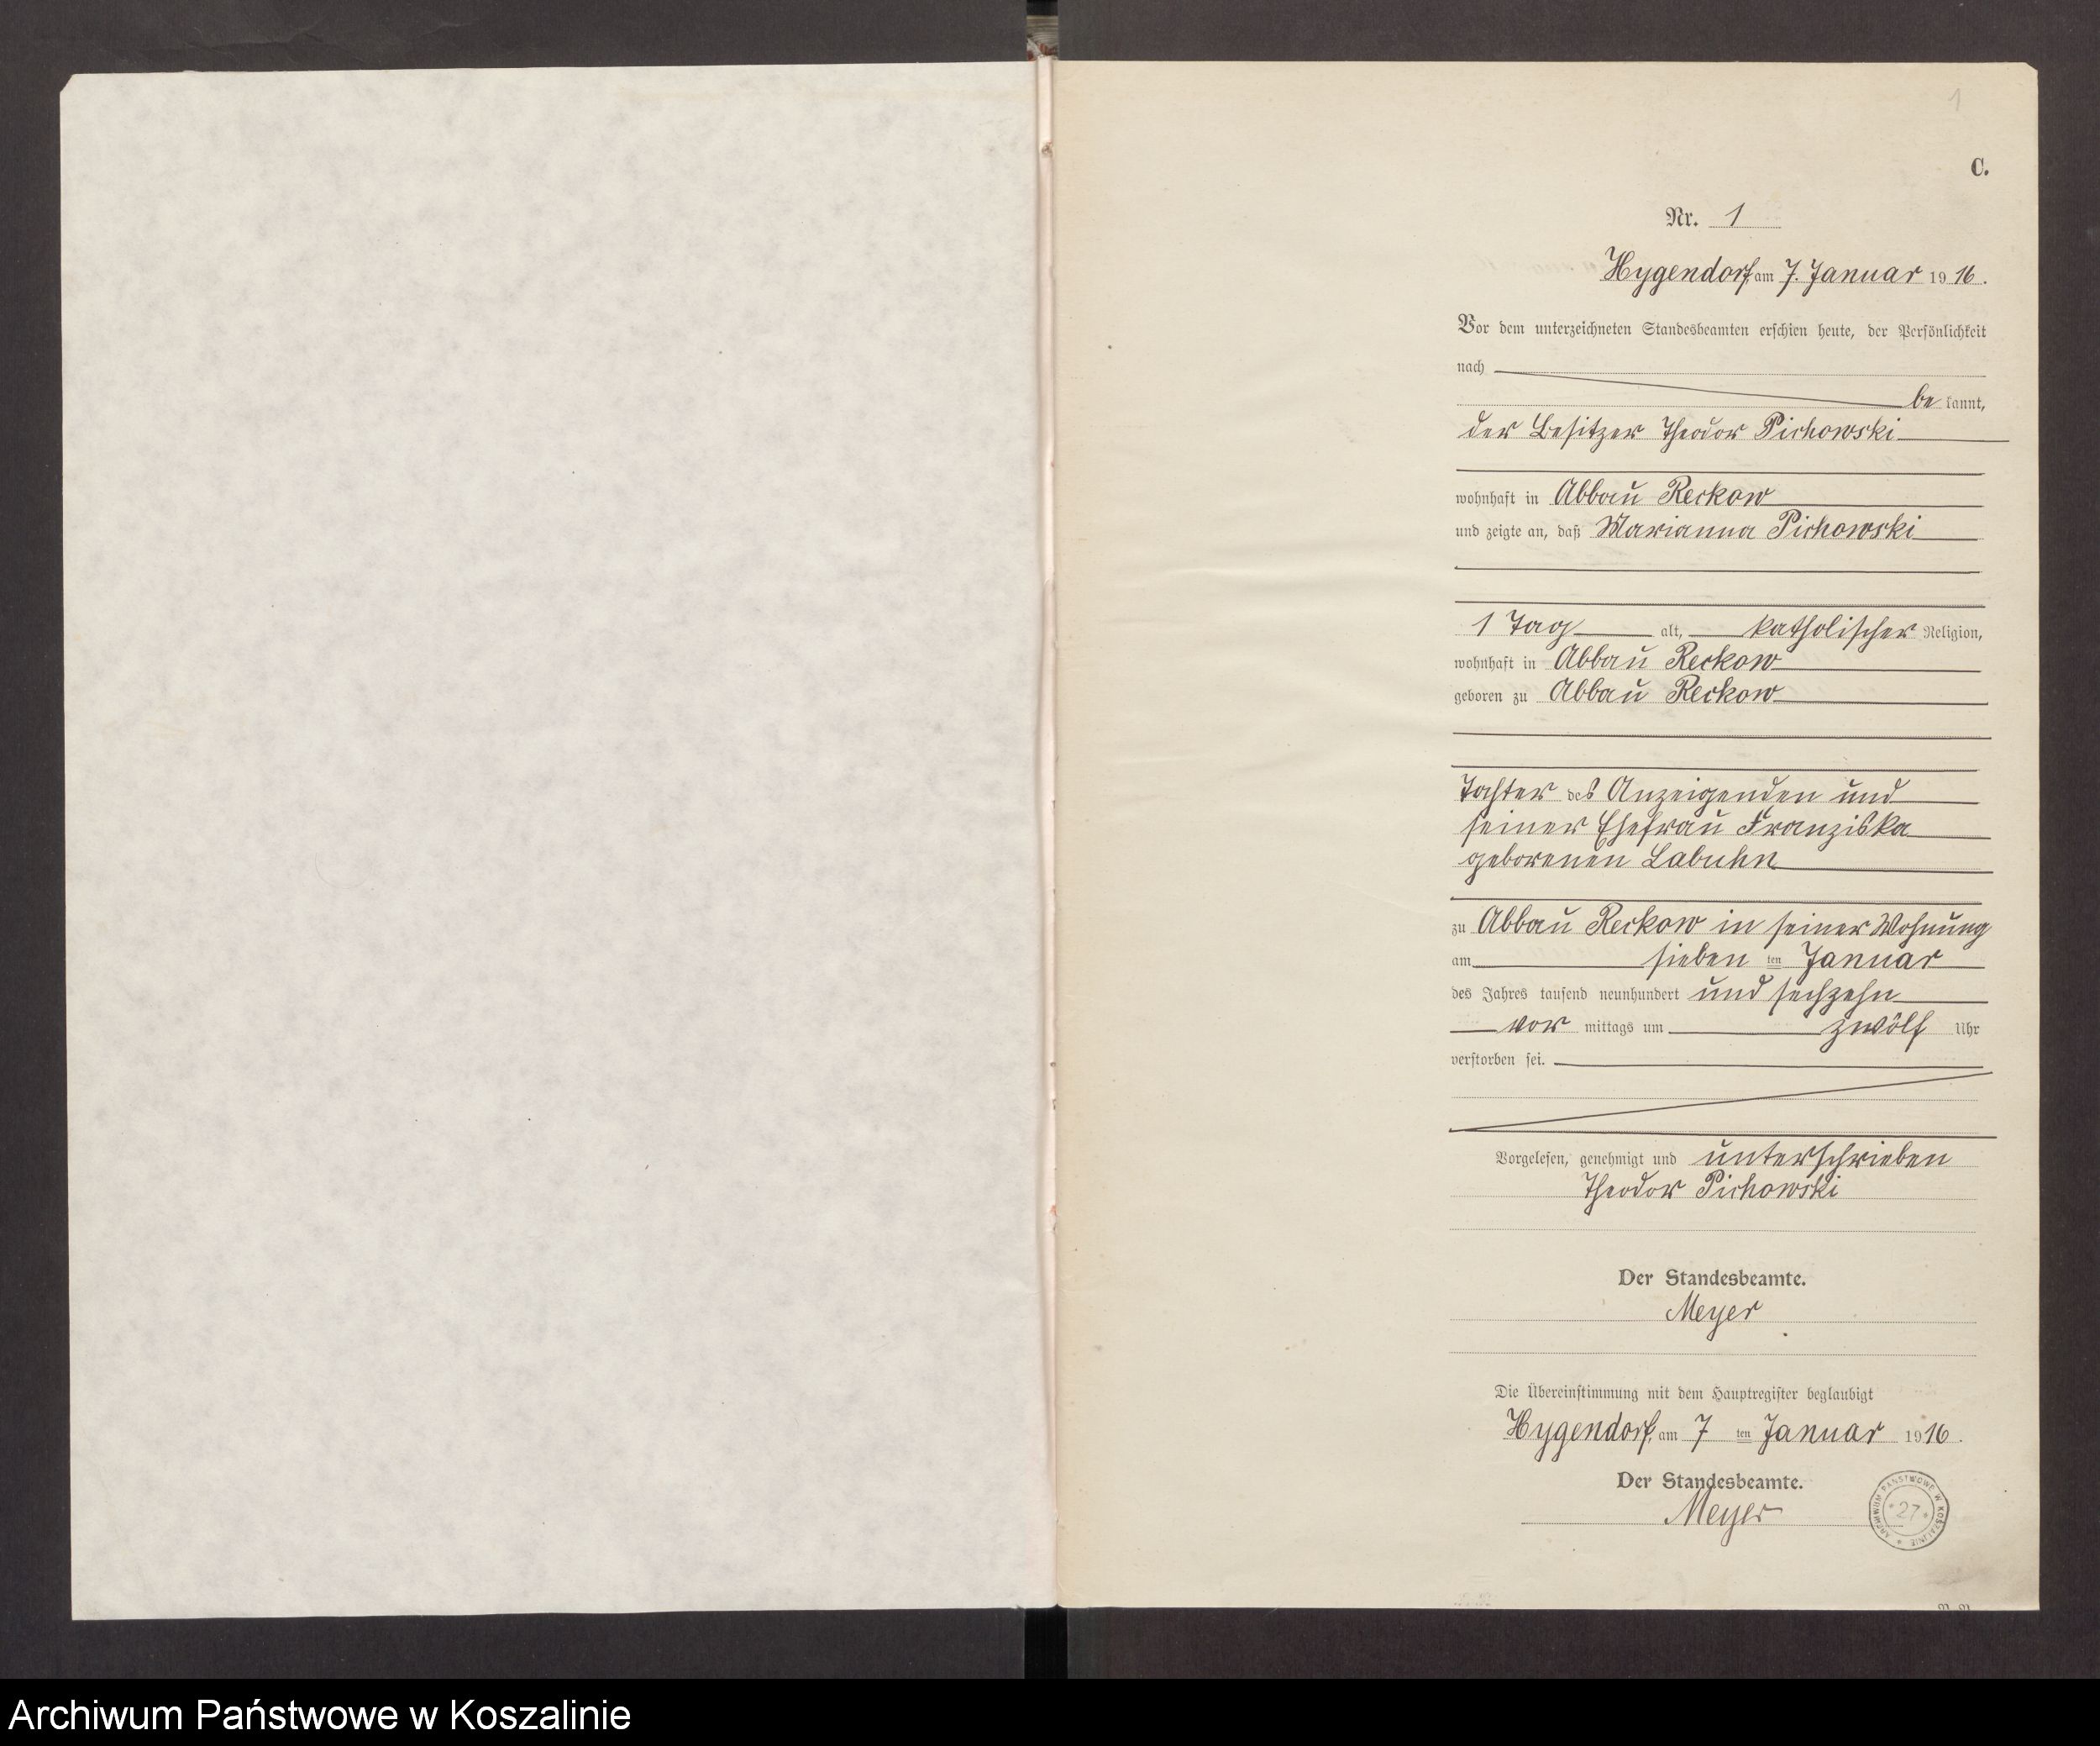 1
C.
Nr. 1
Hygendorf, am 7. Januar 1916.
Vor dem unterzeichneten Standesbeamten erschien heute, der Persönlichkeit
nach
be kannt,
der Besitzer Theodor Pichowski
wohnhaft in Abbau Reckow
und zeigte an, daß Marianna Pichowski
1 Tag alt, katholischer Religion,
wohnhaft in Abbau Reckow
geboren zu Abbau Reckow
Tochter des Anzeigenden und
seiner Ehefrau Franziska
geborenen Labuhn
zu Abbau Reckow in seiner Wohnung
am sieben ten Januar
des Jahres tausend neunhundert und sechzehn
vor mittags um zwölf Uhr
verstorben sei.
Vorgelesen, genehmigt und unterschrieben
Theodor Pichowski
Der Standesbeamte.
Meyer
Die Übereinstimmung mit dem Hauptregister beglaubigt
Hygendorf, am 7 ten Januar 1916.
Der Standesbeamte.
Meyer
ARCHIWUM PAŃSTWOWE W KOSZALINIE
*27*
Archiwum Państwowe w Koszalinie